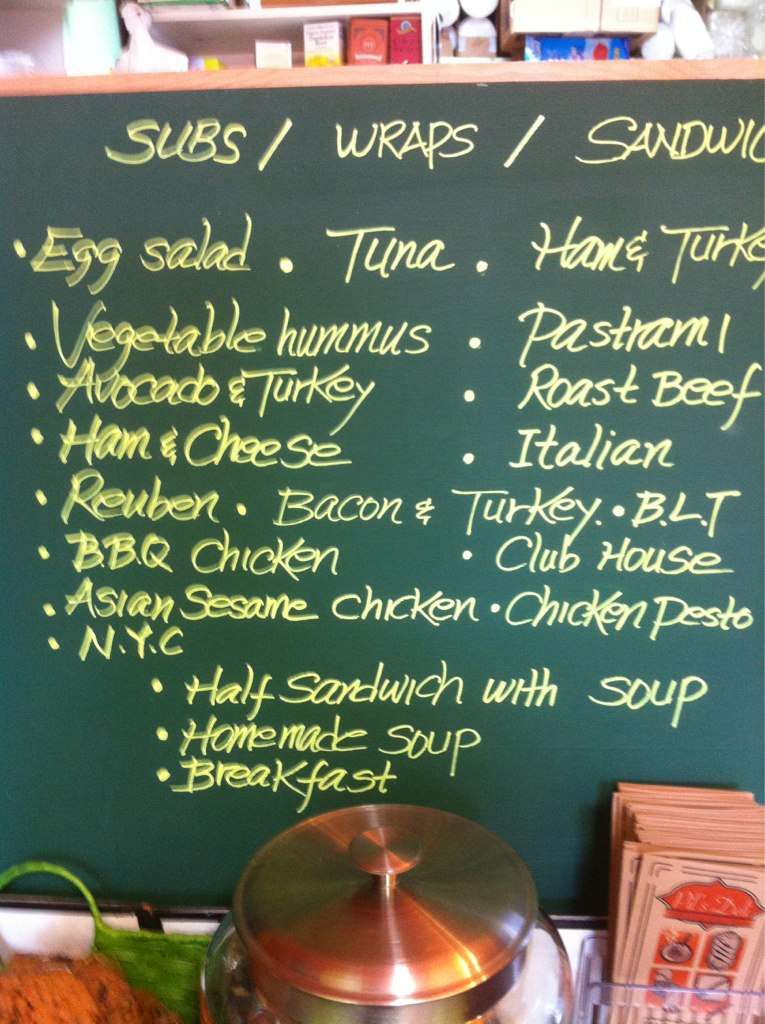 SUBS / WRAPS / SANDWIC
• Egg salad • Tuna • Ham & Turke
• Vegetable hummus • Pastrami
• Avocado & Turkey • Roast Beef
• Ham & Cheese • Italian
• Reuben • Bacon & Turkey. • B.L.T
• B.B.Q Chicken • Club House
• Asian Sesame chicken • Chicken Pesto
• N.Y.C
• Half Sandwich with soup
• Homemade soup
• Breakfast